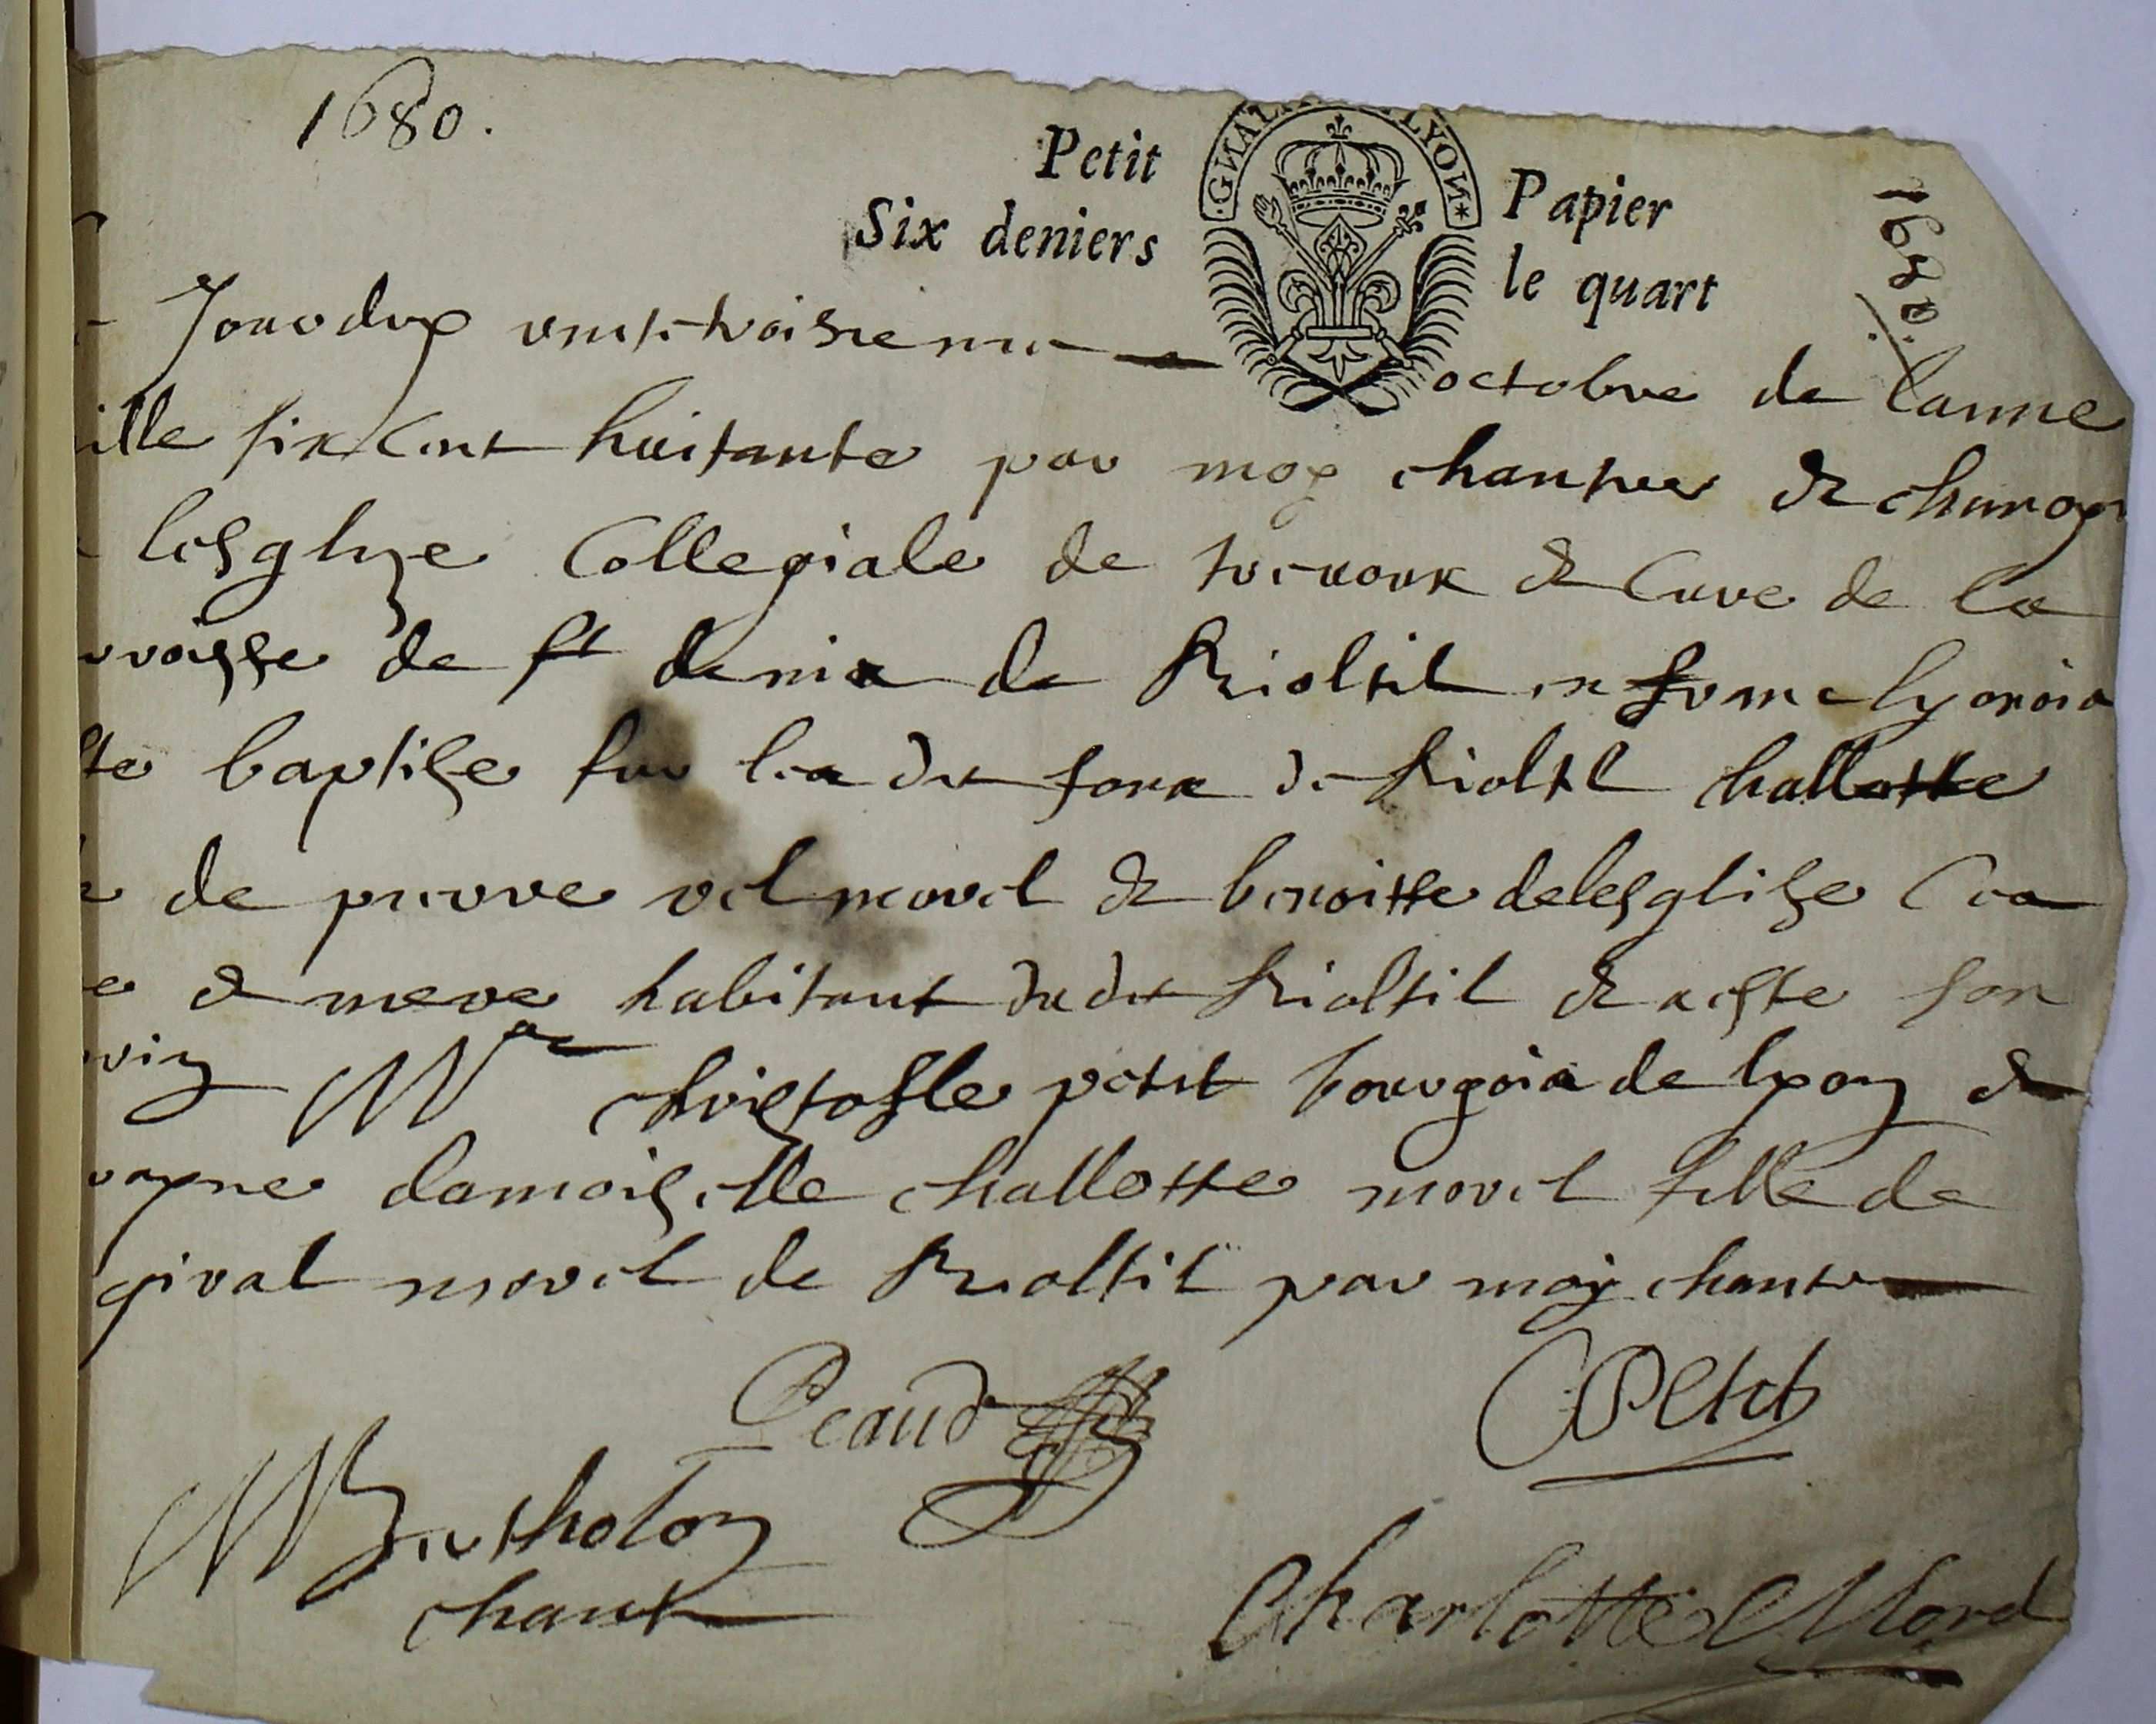 1680.
GNAL LYON
Petit Papier
Six deniers le quart
1680.
Jourdhuy vint troisieme octobre de lanne
ille six cent huitante par moy chantre & chanoy
lesglize Collegiale de & Cure de la
roisse de st denis de Rioltil en franc lyonois
te baptise sur les du fons de Rioltil challotte
de pierre vel morel & benoitte delesglise
e & mere habitant dudit Rioltil & a este son
rin Mre christofle petit bourgois de lyon &
rayne damoiselle challotte morel fille de
gival morel de Rioltil par moy chantre
Peaud
CPetit
MBertholon
chant
Charlotte Morel